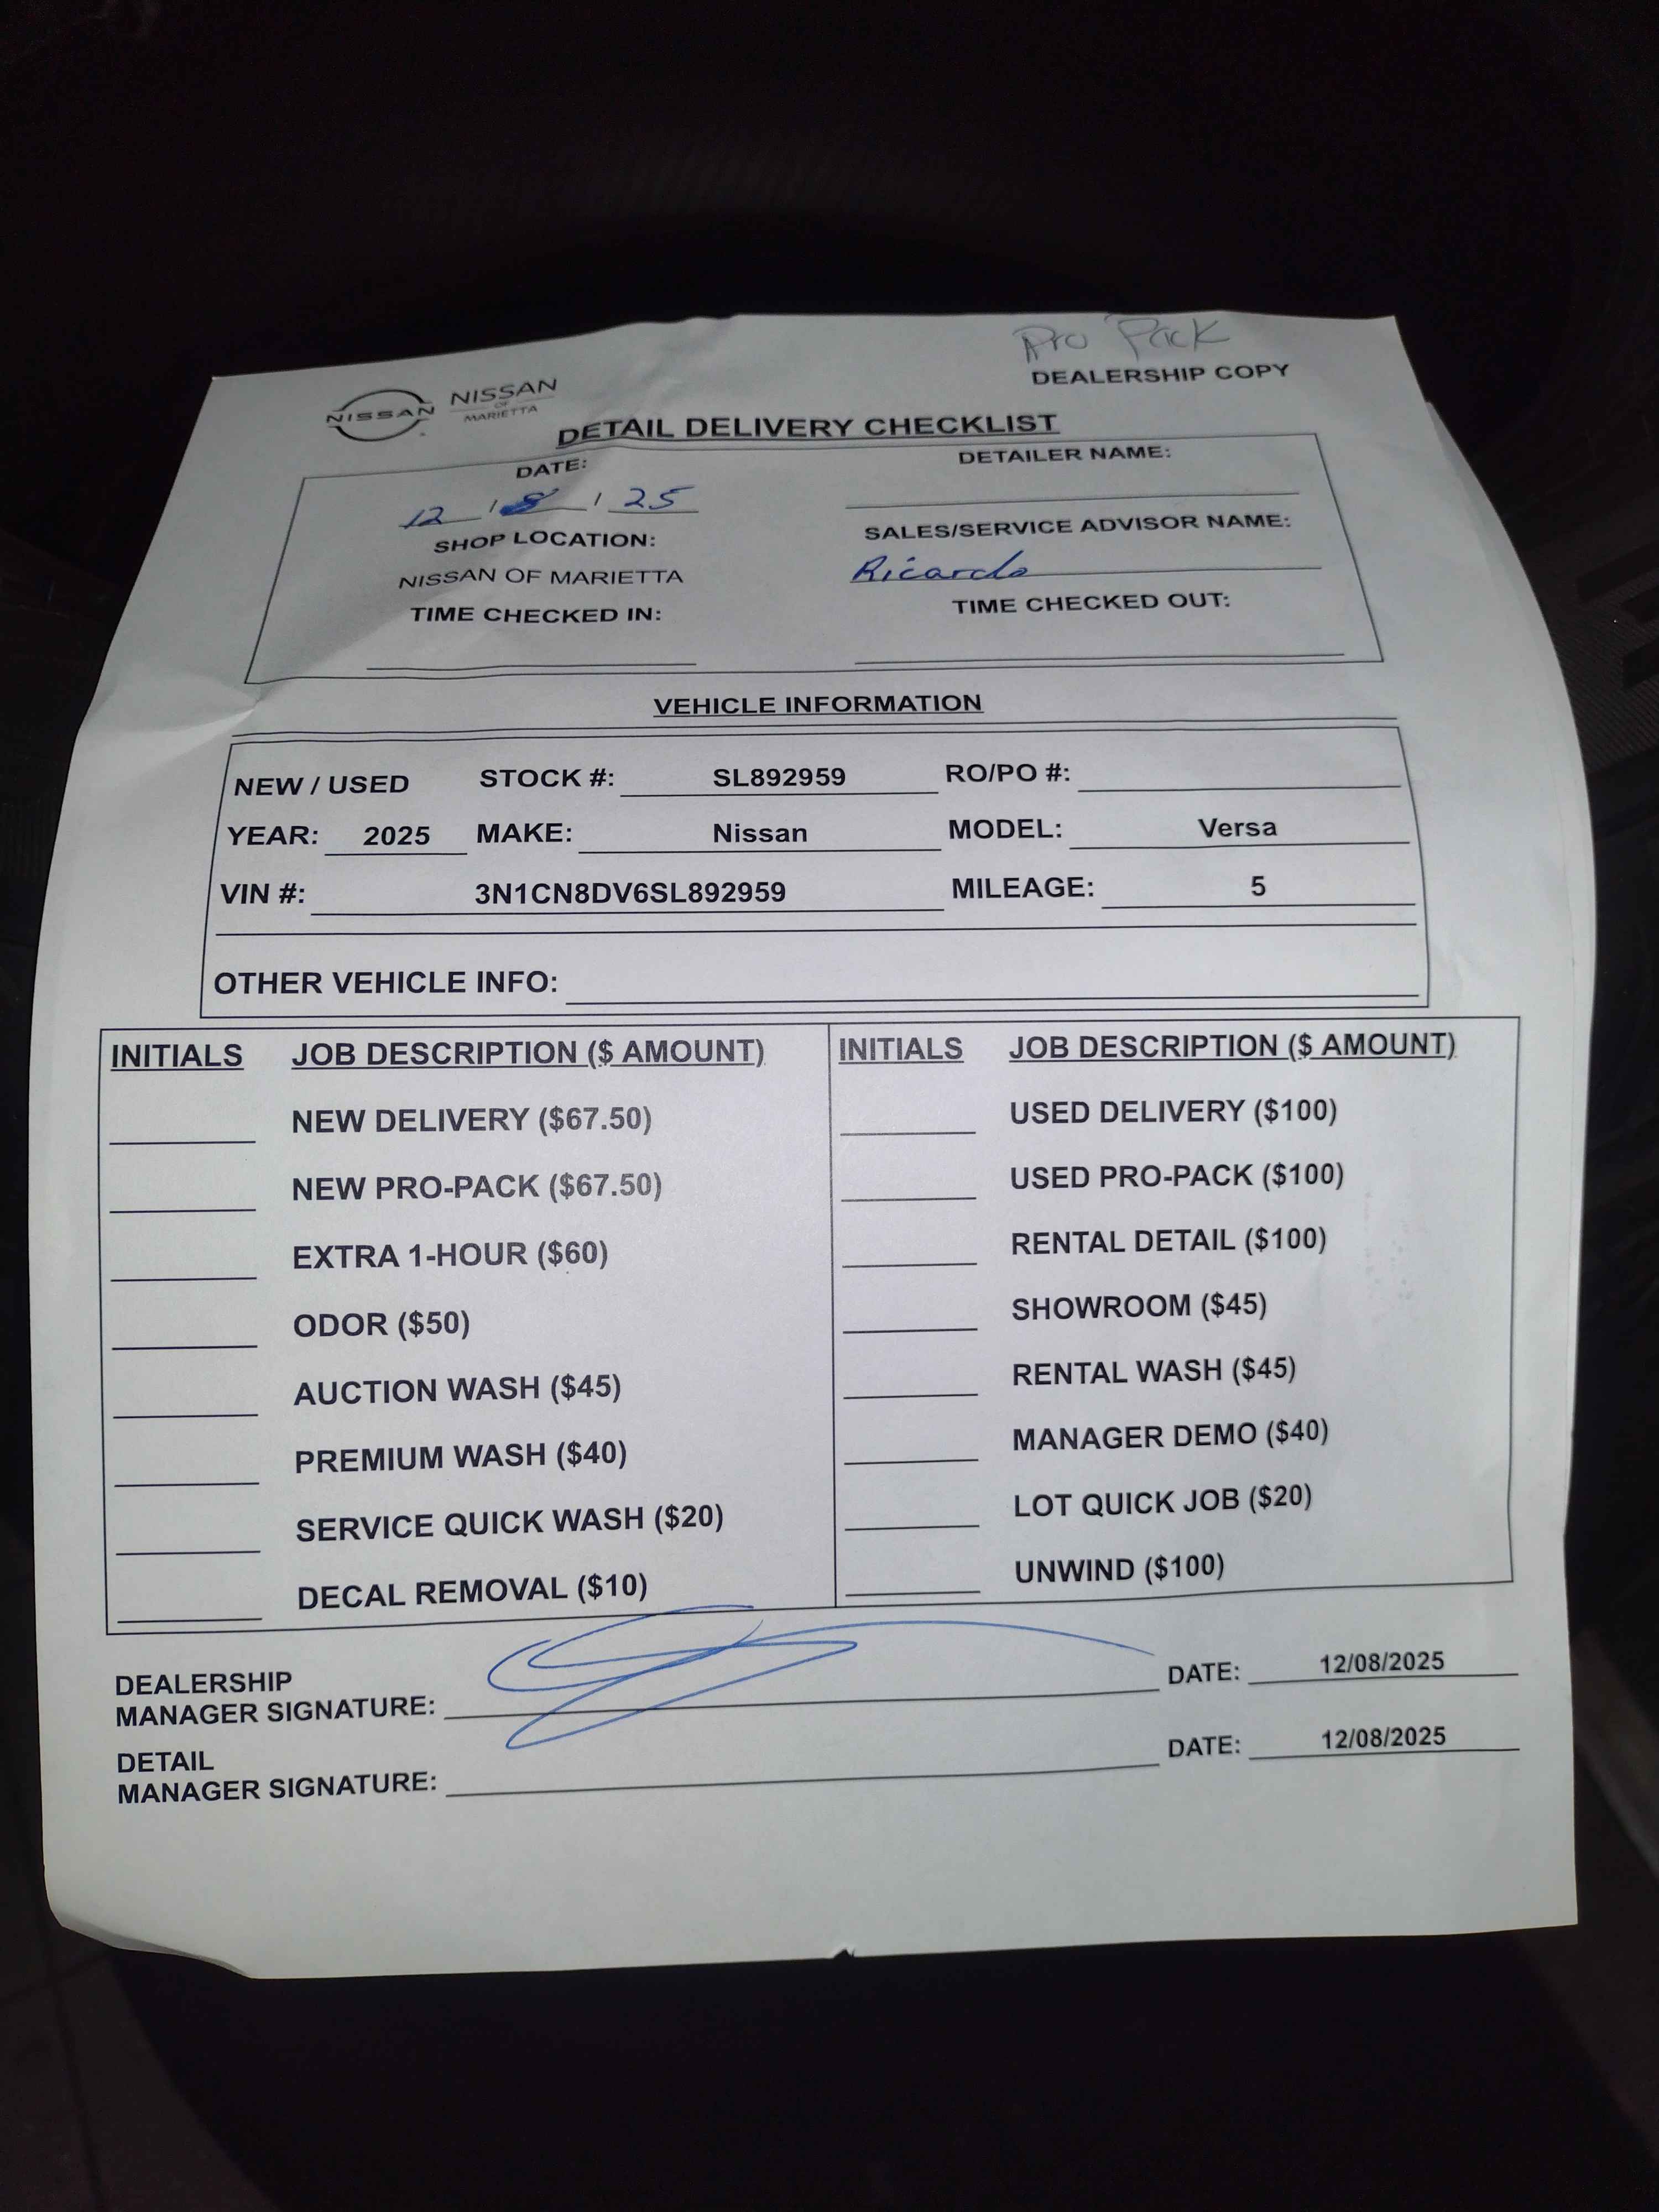 Pro Pack
DEALERSHIP COPY
NISSAN
NISSAN
OF
MARIETTA
DETAIL DELIVERY CHECKLIST
DATE:
12 / 8 / 25
DETAILER NAME:
SHOP LOCATION:
NISSAN OF MARIETTA
SALES/SERVICE ADVISOR NAME:
Ricardo
TIME CHECKED IN:
TIME CHECKED OUT:
VEHICLE INFORMATION
NEW / USED STOCK #: SL892959 RO/PO #:
YEAR: 2025 MAKE: Nissan MODEL: Versa
VIN #: 3N1CN8DV6SL892959 MILEAGE: 5
OTHER VEHICLE INFO:
INITIALS JOB DESCRIPTION ($ AMOUNT)
NEW DELIVERY ($67.50)
NEW PRO-PACK ($67.50)
EXTRA 1-HOUR ($60)
ODOR ($50)
AUCTION WASH ($45)
PREMIUM WASH ($40)
SERVICE QUICK WASH ($20)
DECAL REMOVAL ($10)
INITIALS JOB DESCRIPTION ($ AMOUNT)
USED DELIVERY ($100)
USED PRO-PACK ($100)
RENTAL DETAIL ($100)
SHOWROOM ($45)
RENTAL WASH ($45)
MANAGER DEMO ($40)
LOT QUICK JOB ($20)
UNWIND ($100)
DEALERSHIP
MANAGER SIGNATURE: DATE: 12/08/2025
DETAIL
MANAGER SIGNATURE: DATE: 12/08/2025